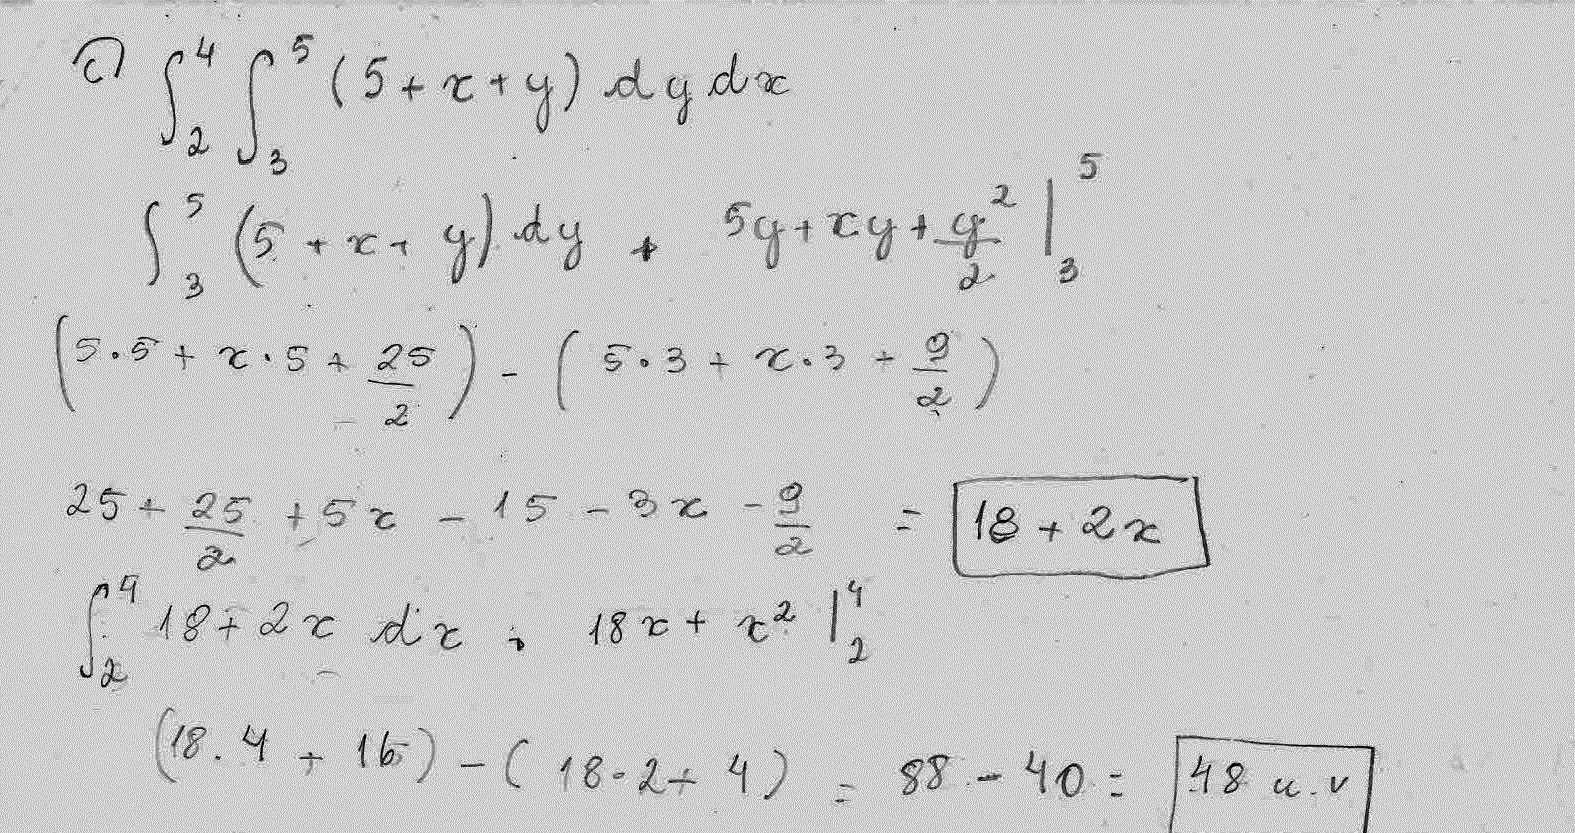 c) ∫₂⁴ ∫₃⁵ (5 + x + y) dy dx
∫₃⁵ (5 + x + y) dy , 5y + xy + y²/2 |₃⁵
(5·5 + x·5 + 25/2) - (5·3 + x·3 + 9/2)
25 + 25/2 + 5x - 15 - 3x - 9/2 = 18 + 2x
∫₂⁴ 18 + 2x dx , 18x + x² |₂⁴
(18·4 + 16) - (18·2 + 4) = 88 - 40 = 48 u.v